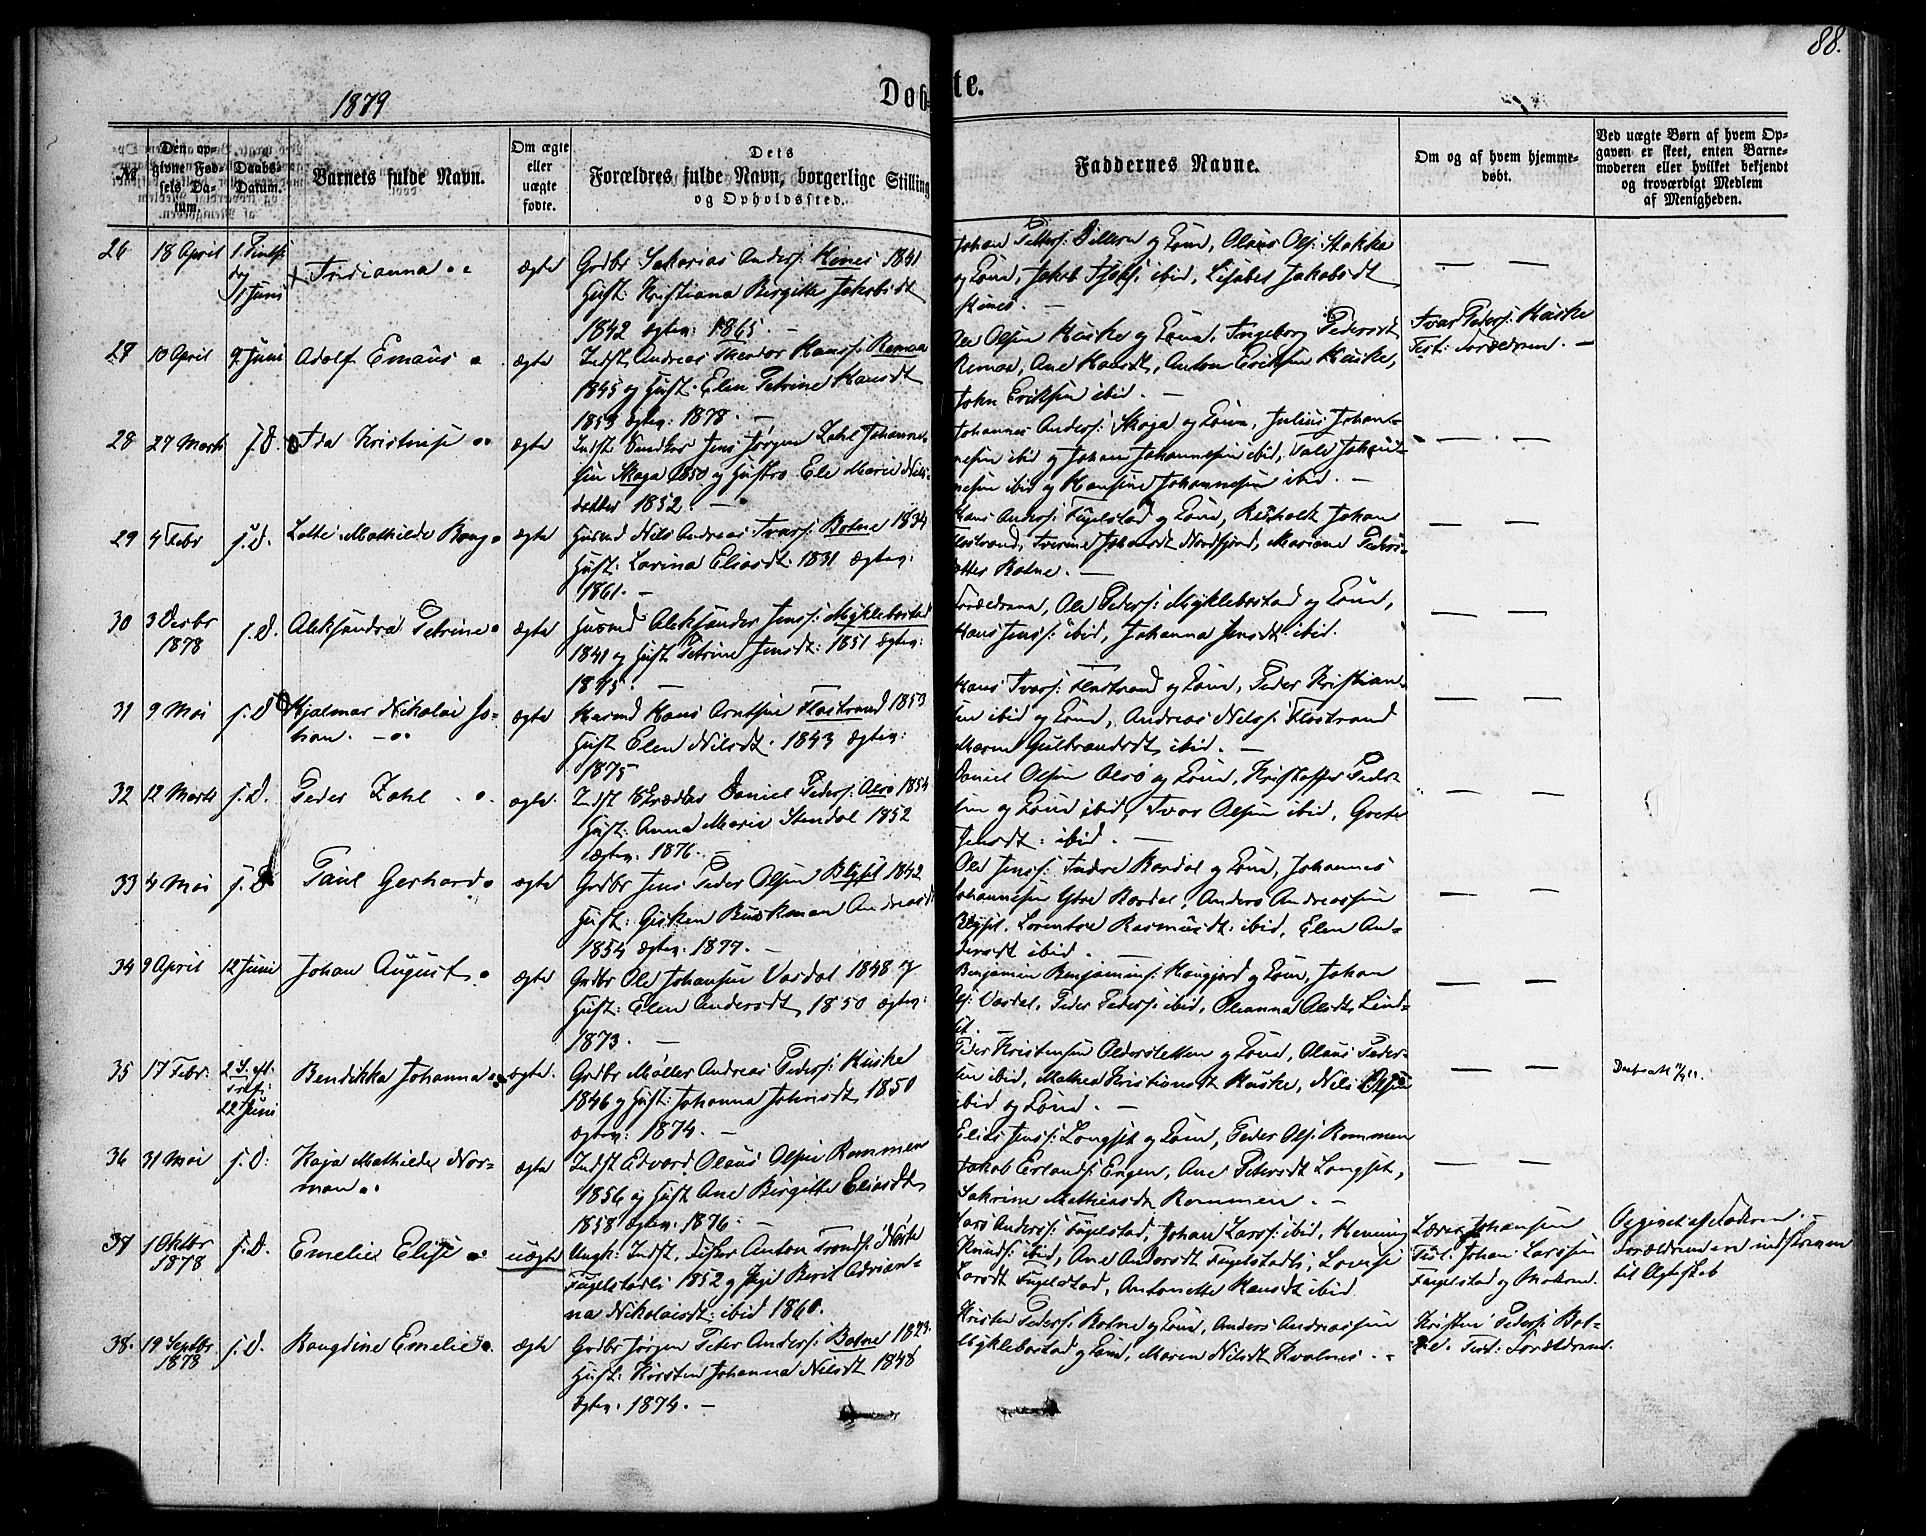 88.
1879
Døb-
te.
№
Den op-
givne Fød-
sels Da-
tum.
Daabs-
Datum.
Barnets fulde Navn.
Om ægte
eller
uægte
fødte.
Dets
Forældres fulde Navn, borgerlige Stilling
og Opholdssted.
Faddernes Navne.
Om og af hvem hjemme-
døbt.
Ved uægte Børn af hvem Op-
gaven er skeet, enten Barne-
moderen eller hvilket bekjendt
og troværdigt Medlem
af Menigheden.
26
18 April
1 Pintse
dag
1 Juni
Fridianna
ægte
Grdbr Sakarias Anders: Hines 1841
Hust: Kristiana Birgitte Jakobsdt
1842 ægtev: 1865. —
Johan Petters: og Kone, Olaus Ols: Stokke
og Kone, Jakob ibid, Lisabet Jakobsdt
Hines. —
— —
27
10 April
9 Juni
Adolf Emaus
ægte
Indst Andreas Theodor Hanss: Remaa
1845 og Hust: Elen Petrine Hansdt
1853 ægtev: 1878. —
Ole Olsen Huske og Kone, Ingeborg Pedersdt
Remaa, Ane Hansdt, Anton Eriksen Huske,
John Eriksen ibid. —
Ivar Peders: Huske
Test: Forældrene. —
28
27 Marts
s. D.
Ida Kristense
ægte
Indst Smedker Jens Jørgen Zahl Johannes-
sen Skaga 1850 og Hustro Ele Marie Nils-
datter 1852. —
Johannes Anders: Skaga og Kone, Julius Johan-
nesen ibid og Johan Johannesen ibid, Vale Johan-
nesen ibid og Hansine Johannesen ibid. —
— —
29
4 Febr
s. D.
Lotte Mathilde Bong
ægte
Husmd Nils Andreas Ivars: Botne 1834
Hust: Lorina Eliasdt. 1831 ægtev:
1861. —
Hans Anders: Fugelstad og Kone, Johan
Flostrand, Iverine Johansdt Nordfjord, Mariane Peders-
datter Botne. —
— —
30
3 Decbr
1878
s. D.
Aleksandra Petrine
ægte
Husmd Aleksander Jenss: Myklebostad
1841 og Hust Petrine Jensdt: 1851 ægtev:
1875. —
Forældrene, Ole Peders: Myklebostad og Kone,
Hans Jenss: ibid, Johanna Jensdt ibid.
— —
31
9 Mai
s. D
Hjalmar Nikolai Jo-
han. —
ægte
Husmd Hans Arntsen Flostrand 1853
Hust Elen Nilsdt. 1843 ægtev:
1875
Hans Ivars: Flostrand og Kone, Peder Kristian-
sen ibid og Kone, Andreas Nilss: Flostrand
Maren Gulbrandsdt ibid. —
— —
32
12 Marts
s. D.
Peder Zahl
ægte.
Indst Skrædder Daniel Peders: Alsø 1854
Hust: Anna Marie Stendal 1852
ægtev: 1876. —
Daniel Olsen Alsø og Kone, Kristoffer Peder-
sen og Kone ibid, Ivar Olsen ibid, Grete
Jensdt: ibid. —
— —
33
4 Mai
s. D
Paul Gerhard
ægte
Grdbr Jens Peder Olsen Bligset 1842
Hust: Gjsken Buskman Andreasdt
1854 ægtev: 1877. —
Ole Jenss: Indre Kardal og Kone, Johannes
Johannesen Ytre Kardal, Anders Andreassen
Bligset, Lorentse Rasmusdt: ibid, Elen An-
dersdt ibid. —
— —
34
9 April
12 Juni
Johan August
ægte
Grdbr Ole Johansen Vasdal 1848 og
Hust: Elen Andersdt, 1850 ægtev:
1873. —
Benjamin Benjamins: Haugjord og Kone, Johan
Ols: Vasdal, Peder Peders: ibid, Oleanna Olsdt Lind-
set.
— —
35
17 Febr:
2 S. eft.
Tref:
22 Juni
Bendikka Johanna
ægte.
Grdbr Møller Andreas Peders: Huske
1846 og Hust: Johanna Johnsdt, 1850
ægtev: 1874. —
Peder Kristensen Alderstetten og Kone, Olaus Peder-
sen ibid, Mathea Kristiansdt Huske, Nils Olsen
ibid og Kone. —
— —
36
31 Mai
s. D:
Kaja Mathilde Nor-
man
ægte
Indst Edvard Olaus Olsen Rommen
1856 og Hust Ane Birgitte Eliasdt,
1858 ægtev: 1876. —
Elias Jenss: Longset og Kone, Peder Ols: Rommen
Jakob Erlands: Engen, Ane Petersdt Longset,
Sakrine Mathiasdt Rommen. —
— —
37
1 Oktbr
1878
s. D.
Emelie Elise
uægte
Ungk: Indst, Fisker Anton Tronds: Nøste
Fugelstadli 1852 og Pige Berit Adrian-
na Nikolaisdt: ibid 1860.
Lars Anderss: Fugelstad, Johan Larss: ibid, Henning
Knuds: ibid, Ane Andersdt Fugelstadli, Lovise
Larsdt Fugelstad, Antonette Hansdt ibid.
Lærer Johansen
Test: Johan Larssen
Fugelstad og Moderen.
Opgivet af Faderen. —
Forældrene er indskreven
til Ægteskab
38.
19 Septbr
1878
s. D.
Raugdine Emelie
ægte
Grdbr Jørgen Peter Anders: Botne 1823.
Hust: Kirsten Johanna Nilsdt 1848
ægtev: 1874. —
Kristen Peders: Botne og Kone, Anders Andreassen
Myklebostad og Kone, Maren Nilsdt Kvalnes. —
Kristen Peders: Bot-
ne. Test: Forældrene.